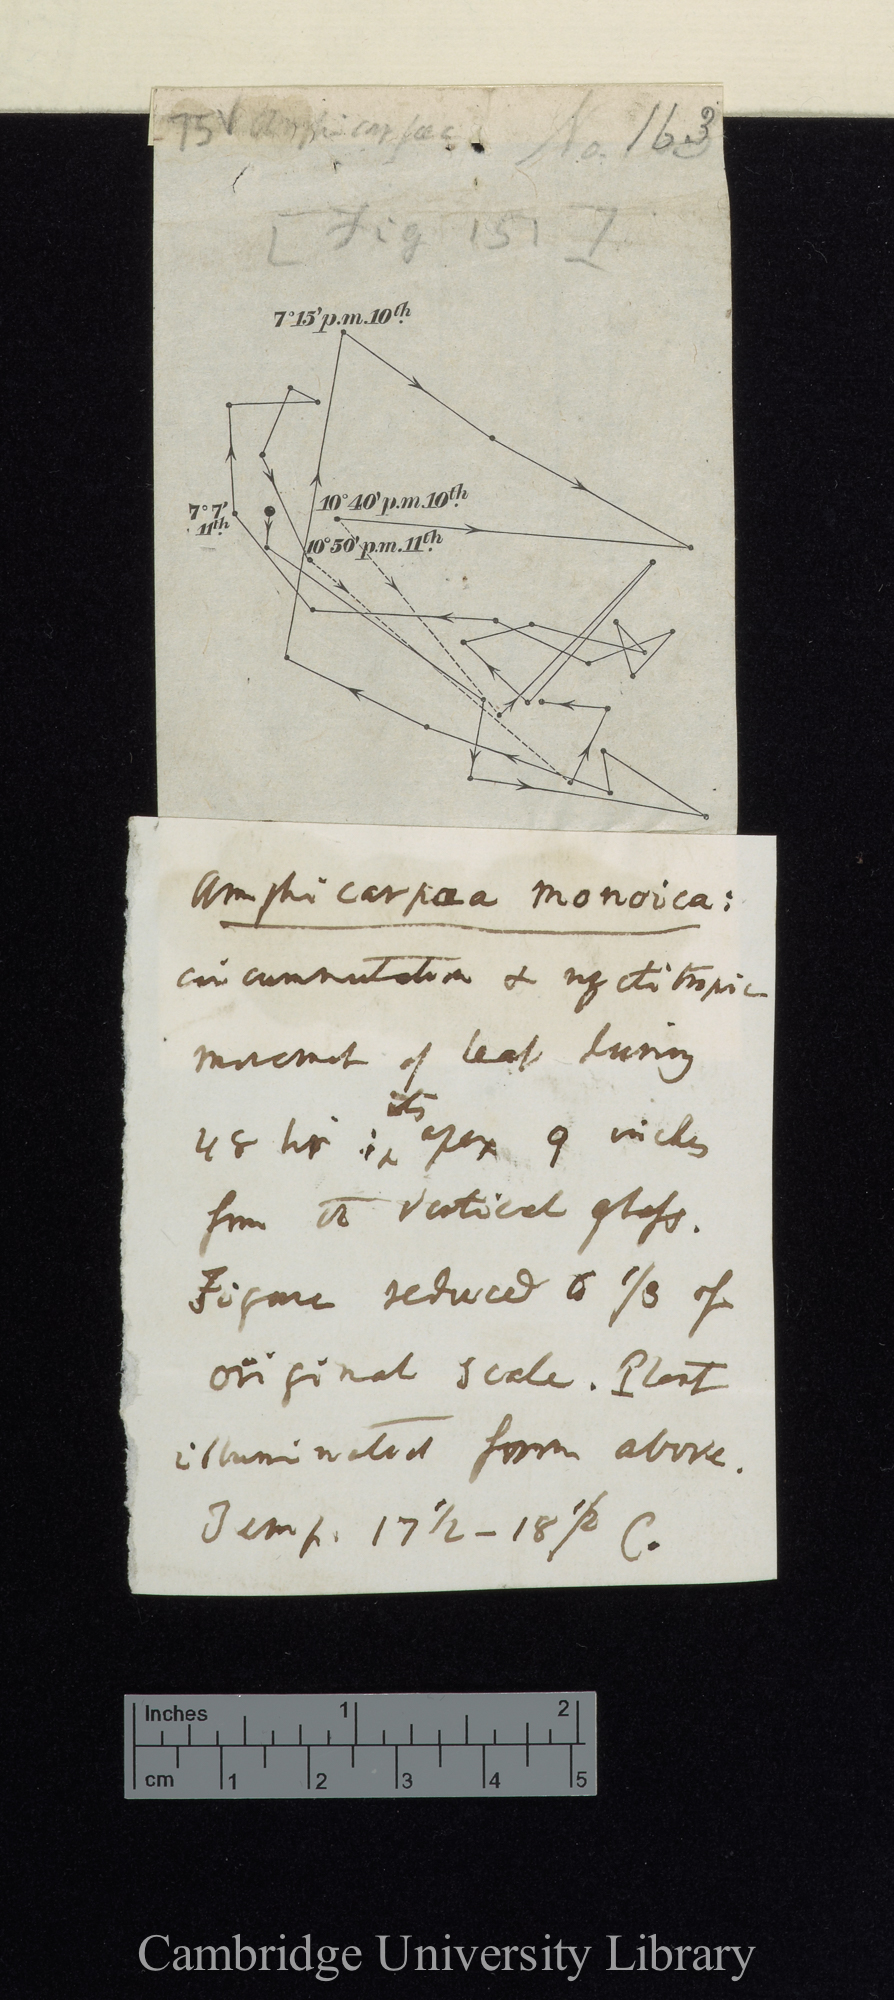 75 V Amphicarpaea No. 163
[Fig 151]
7°15' p.m. 10th
10°40' p.m. 10th
7°7'
11th
10°50' p.m. 11th
Amphicarpæa monoica:
circumnutation & nyctitropic
movement of leaf during
48 hrs; its apex 9 inches
from the vertical glass.
Figure reduced to 1/3 of
original scale. Plant
illuminated from above.
Temp. 17 1/2 - 18 1/2 C.
Inches 1 2
cm 1 2 3 4 5
Cambridge University Library